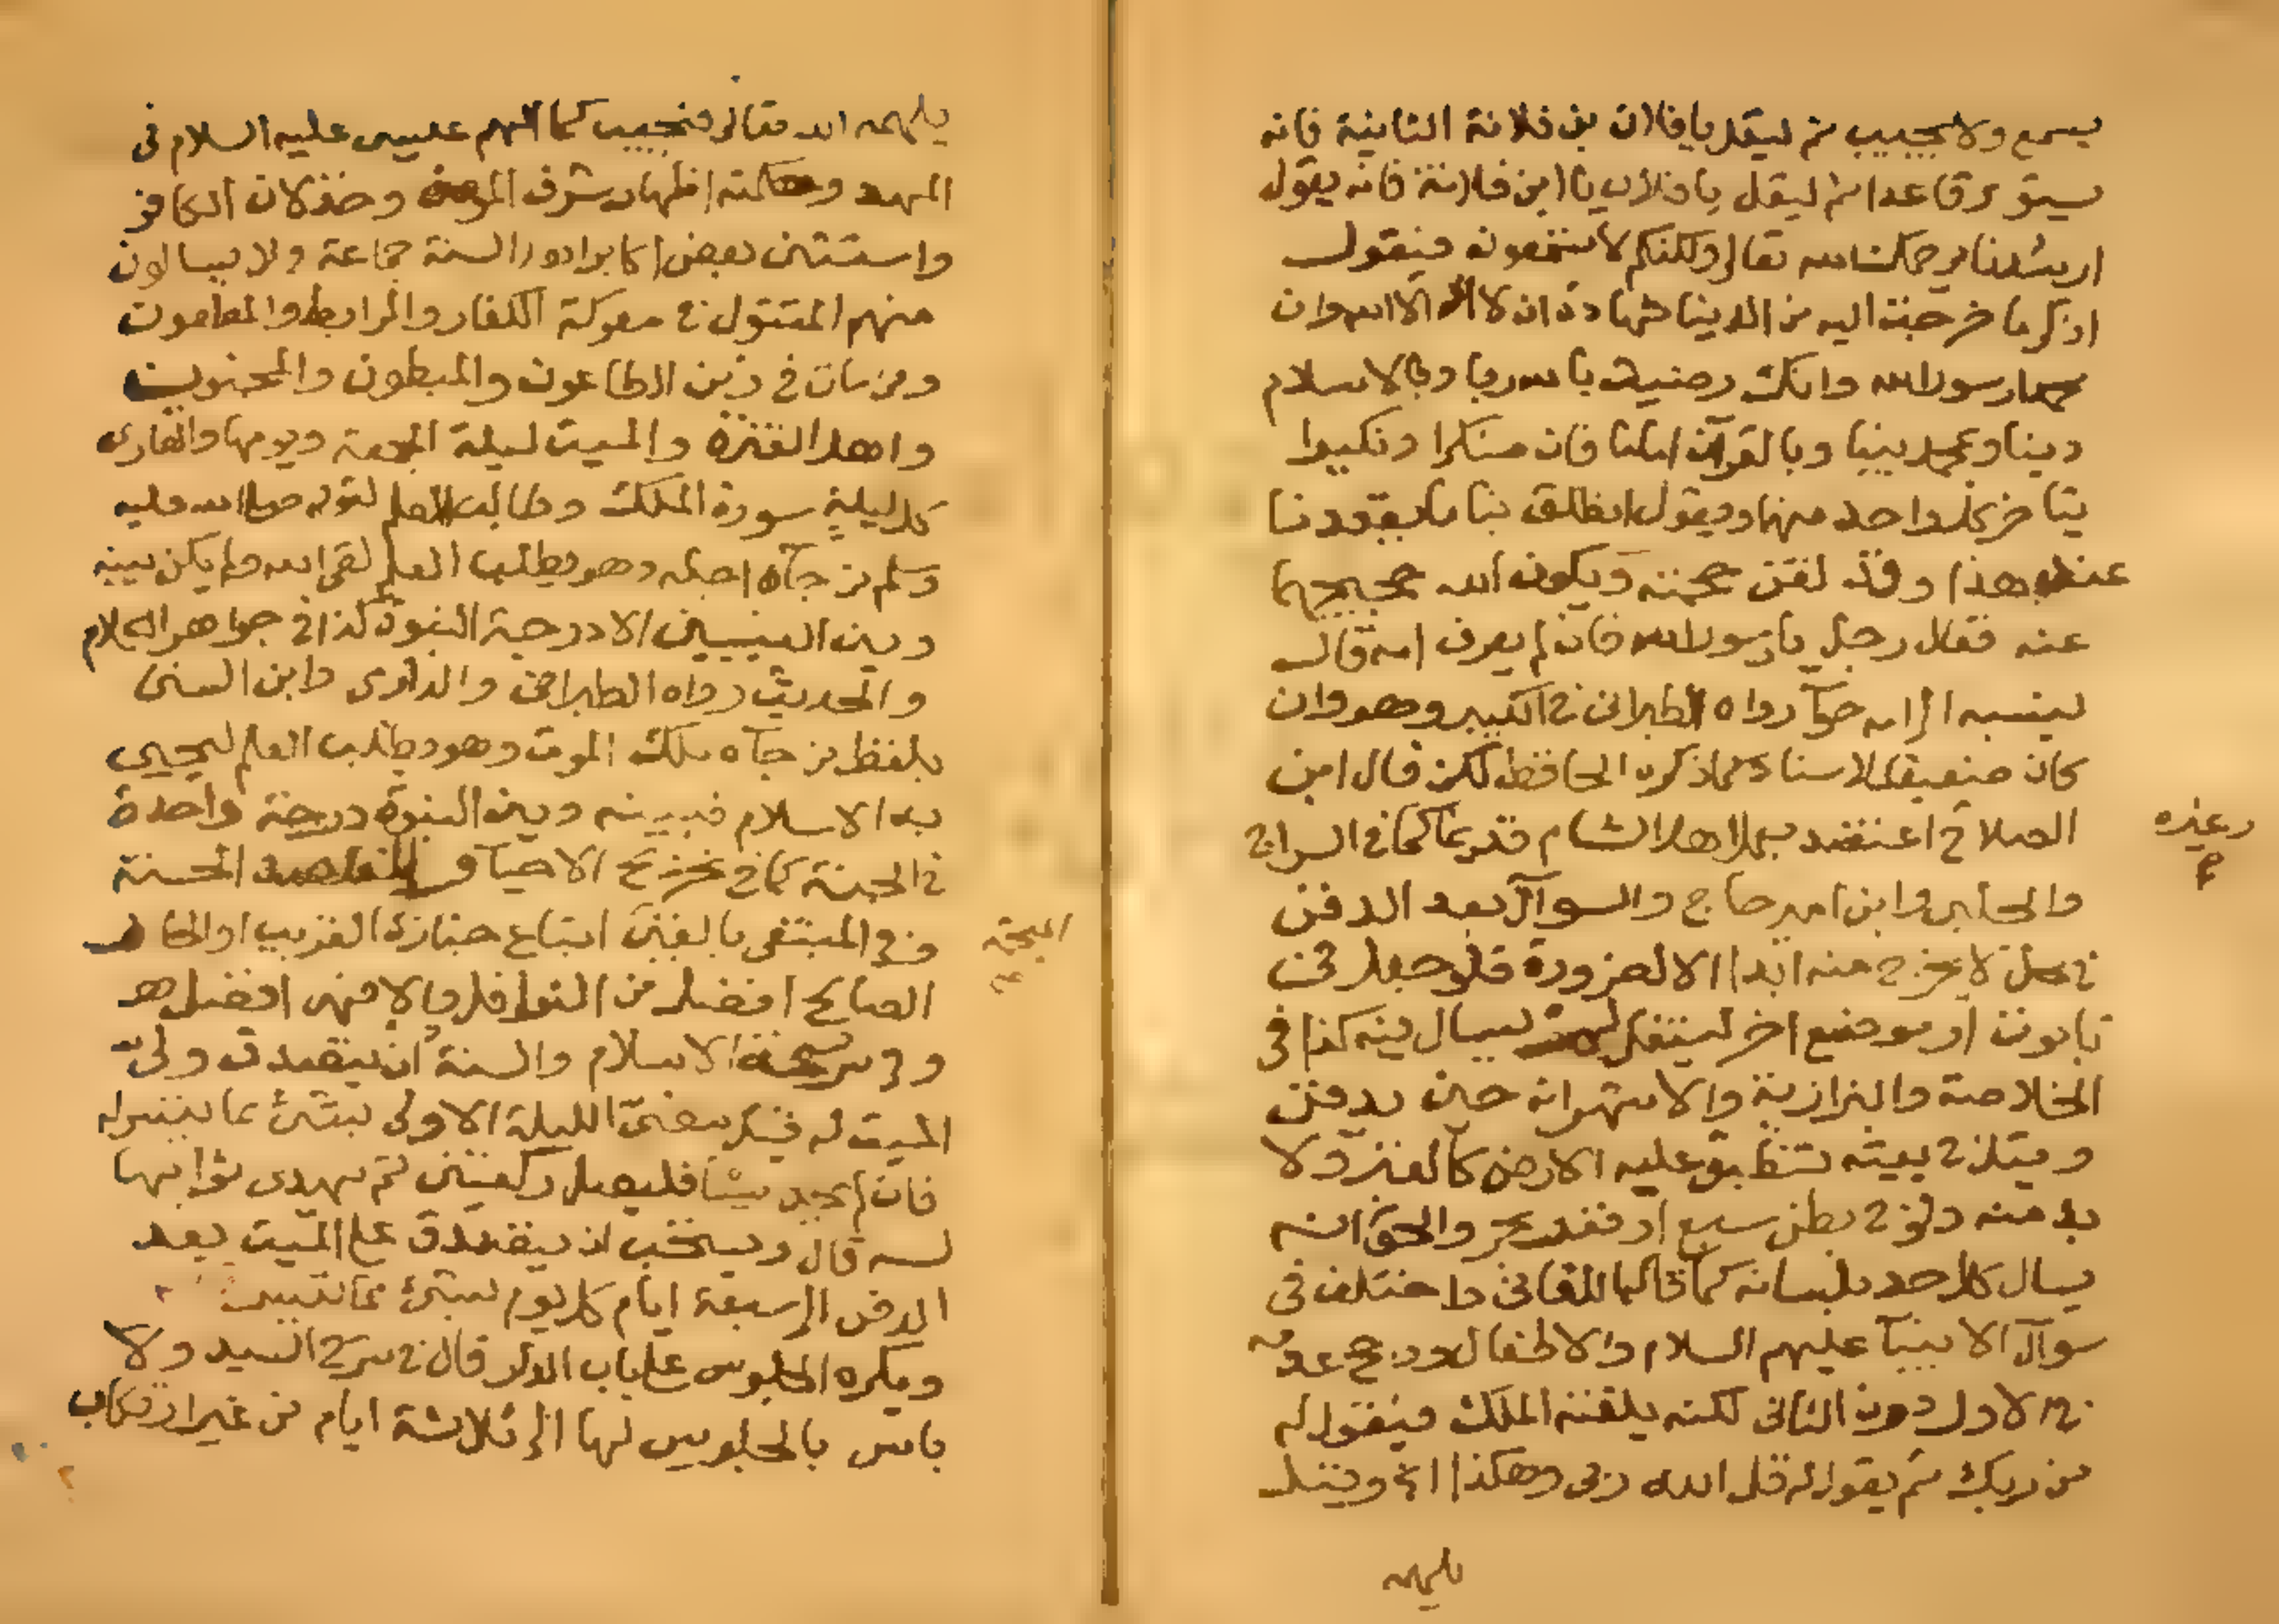 يسمع ولا يجيب ثم ليقل يا فلان بن فلانة الثانية فانه
يستوى قاعدا ثم ليقل يا فلان يا ابن فلانة فانه يقول
ارشدنا يرحمك الله تعالى ولكنكم لا تسمعونه فيقول
اذكر ما خرجت اليه من الدينا شهادة ان لا اله الا الله وان
محمدا رسول الله وانك رضيت بالله ربا وبالاسلام
دينا وبمحمد نبيا وبالقرآن اماما فان منكرا ونكيرا
يتاخر كل واحد منهما ويقول انطلق بنا ما يقعدنا
عند هذا وقد لقن حجته ويكون الله حجيجهما
عنه فقال رجل يا رسول الله فان لم يعرف امه قال
لينسبه الى امه حوآ رواه الطبرانى فى الكبير وهو وان
كان ضعيف الاسناد كما ذكره الحافظ لكن قال ابن
الصلاح اعتضد بعمل اهل الشام قديما كما فى السراج
وغيره
والحلبى وابن امير حاج والسوآل بعد الدفن
فى محل لا يخرج منه ابدا الا لضرورة فلو جعل فى
تابوت او موضع اخر لينتقل لم يسال فيه كذا فى
الخلاصة والبزازية والاشهر انه حين يدفن
وقيل فى بيته تنطبق عليه الارض كالقبر ولا
بد منه ولو فى بطن سبع او قعر بحر والحق انه
يسال كل احد بلسانه كما قال اللقانى واختلف فى
سوآل الانبيآ عليهم السلام والاطفال ورجح عدمه
فى الاول دون الثانى لكنه يلقنه الملك فيقول له
من ربك ثم يقول له قل الله ربى وهكذا الخ وقيل
يلهمه
يلهمه الله تعالى فيجيب كما الهم عيسى عليه السلام فى
المهد وحكمته اظهار شرف المومن وخذلان الكافر
واستثنى بعض اكابر السنة جماعة ولا يسالون
منهم المقتول فى معركة الكفار والمرابط والمطعون
ومن مات فى زمن الطاعون والمبطون والمجنون
واهل الفترة والميت ليلة الجمعة ويومها والقارى
كل ليلة سورة الملك وطالب العلم لقوله صلى الله عليه
وسلم من جآه اجله وهو يطلب العلم لقى الله ولم يكن بينه
وبين النبيين الا درجة النبوة كذا فى جواهر الكلام
والحديث رواه الطبرانى والدارمى وابن السنى
بلفظ من جآه ملك الموت وهو يطلب العلم ليحيى
به الاسلام فبينه وبين النبوة درجة واحدة
فى الجنة كما فى تخريج الاحيآ والمقاصد الحسنة
وفى المبتغى بالغين اتباع جنازة القريب او الجار
الصالح افضل من النوافل والا فهى افضل
وفى شرعة الاسلام والسنة ان يتصدق ولى
الميت له قبل مضى الليلة الاولى بشئ مما تيسر له
فان لم يجد شيئا فليصل ركعتين ثم يهدى ثوابهما
له قال ويستحب ان يتصدق على الميت بعد
الدفن الى سبعة ايام كل يوم بشئ مما تيسر
ويكره الجلوس على باب الدار قال فى شرح السيد ولا
باس بالجلوس لها الى ثلاثة ايام من غير ارتكاب